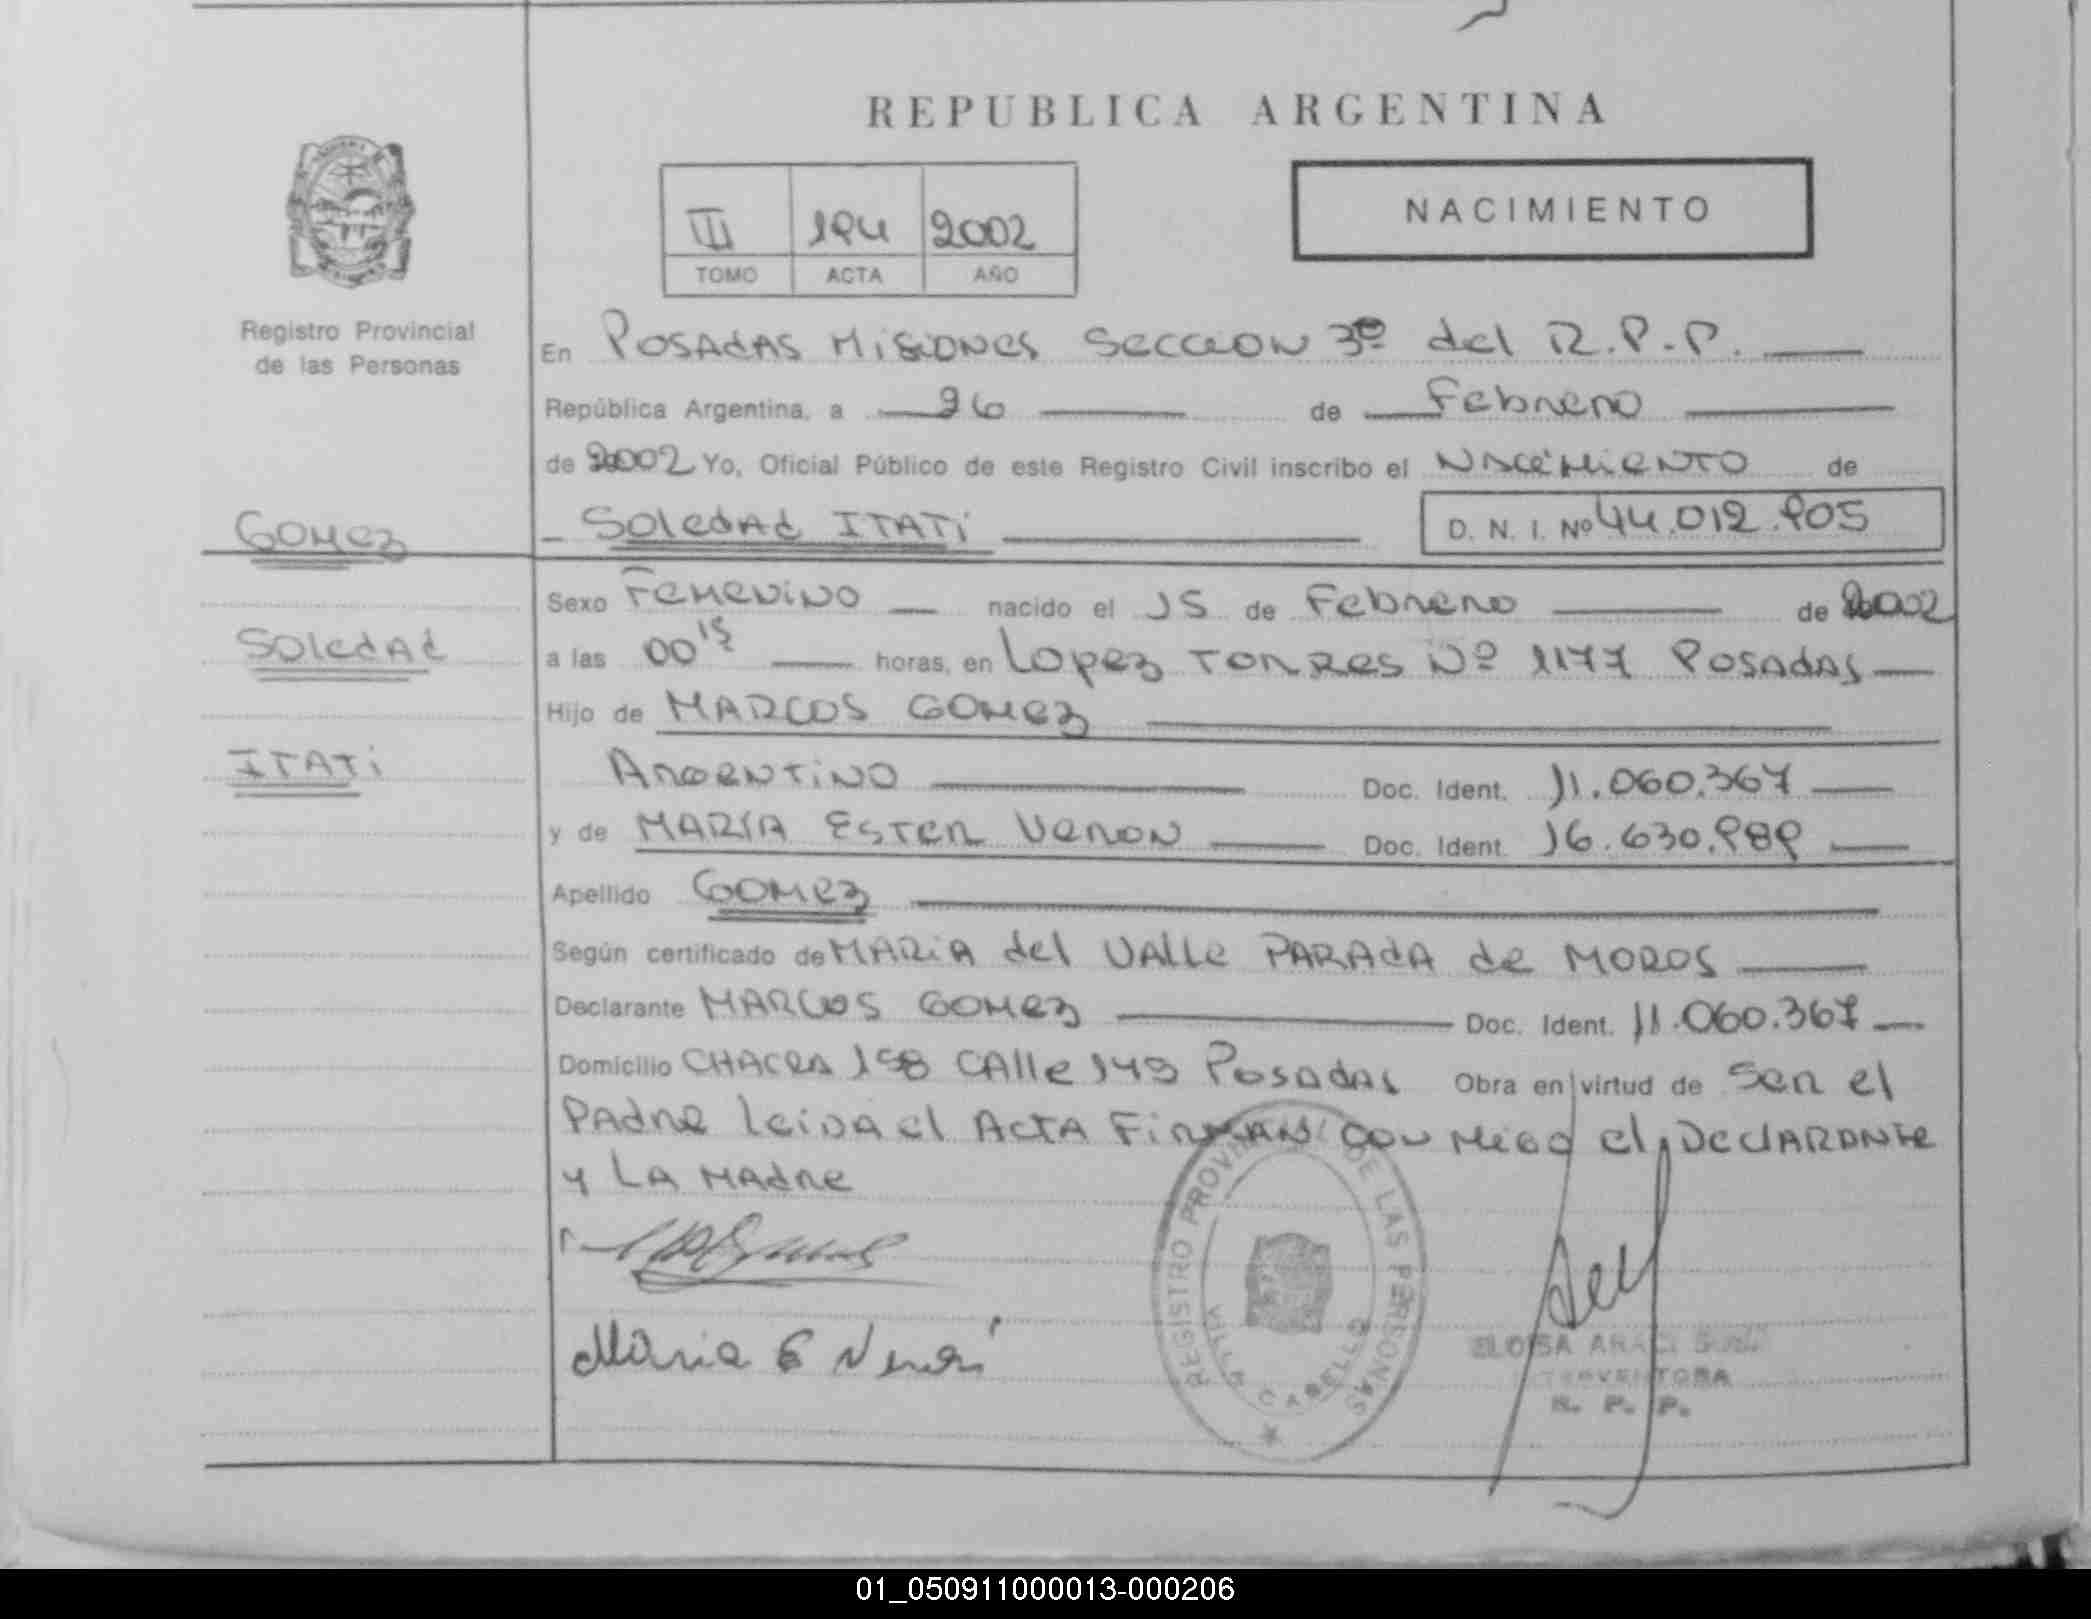 REPUBLICA ARGENTINA
NACIMIENTO
III 194 2002
TOMO ACTA AÑO
Registro Provincial
de las Personas
En POSAdAS MISIONES SECCION 3º del R.P.P.
República Argentina, a 26 de Febrero
de 2002 Yo, Oficial Público de este Registro Civil inscribo el NACIMIENTO de
GOMEZ
SOLEdAd ITATI D. N. I. Nº 44.012.905
Sexo FEMENINO nacido el 15 de Febrero de 2002
SOLEdAd
a las 00 15 horas, en LOPEZ TORRES Nº 1177 POSADAS
Hijo de MARCOS GOMEZ
ITATI
ARGENTINO Doc. Ident. 11.060.367
y de MARIA ESTER VERON Doc. Ident. 16.630.989
Apellido GOMEZ
Según certificado de MARIA del VALLE PARAdA de MOROS
Declarante MARCOS GOMEZ Doc. Ident. 11.060.367
Domicilio CHACRA 158 CAlle 149 POSADAS Obra en virtud de Ser el
PAdre leiDA el ACTA FIRMAN CON MIGO el DEClARANTE
y LA MAdre
Maria E Veron
REGISTRO PROVINCIAL DE LAS PERSONAS
VILLA CABELLO
ELOISA
INTERVENTORA
R. P. P.
01_050911000013-000206